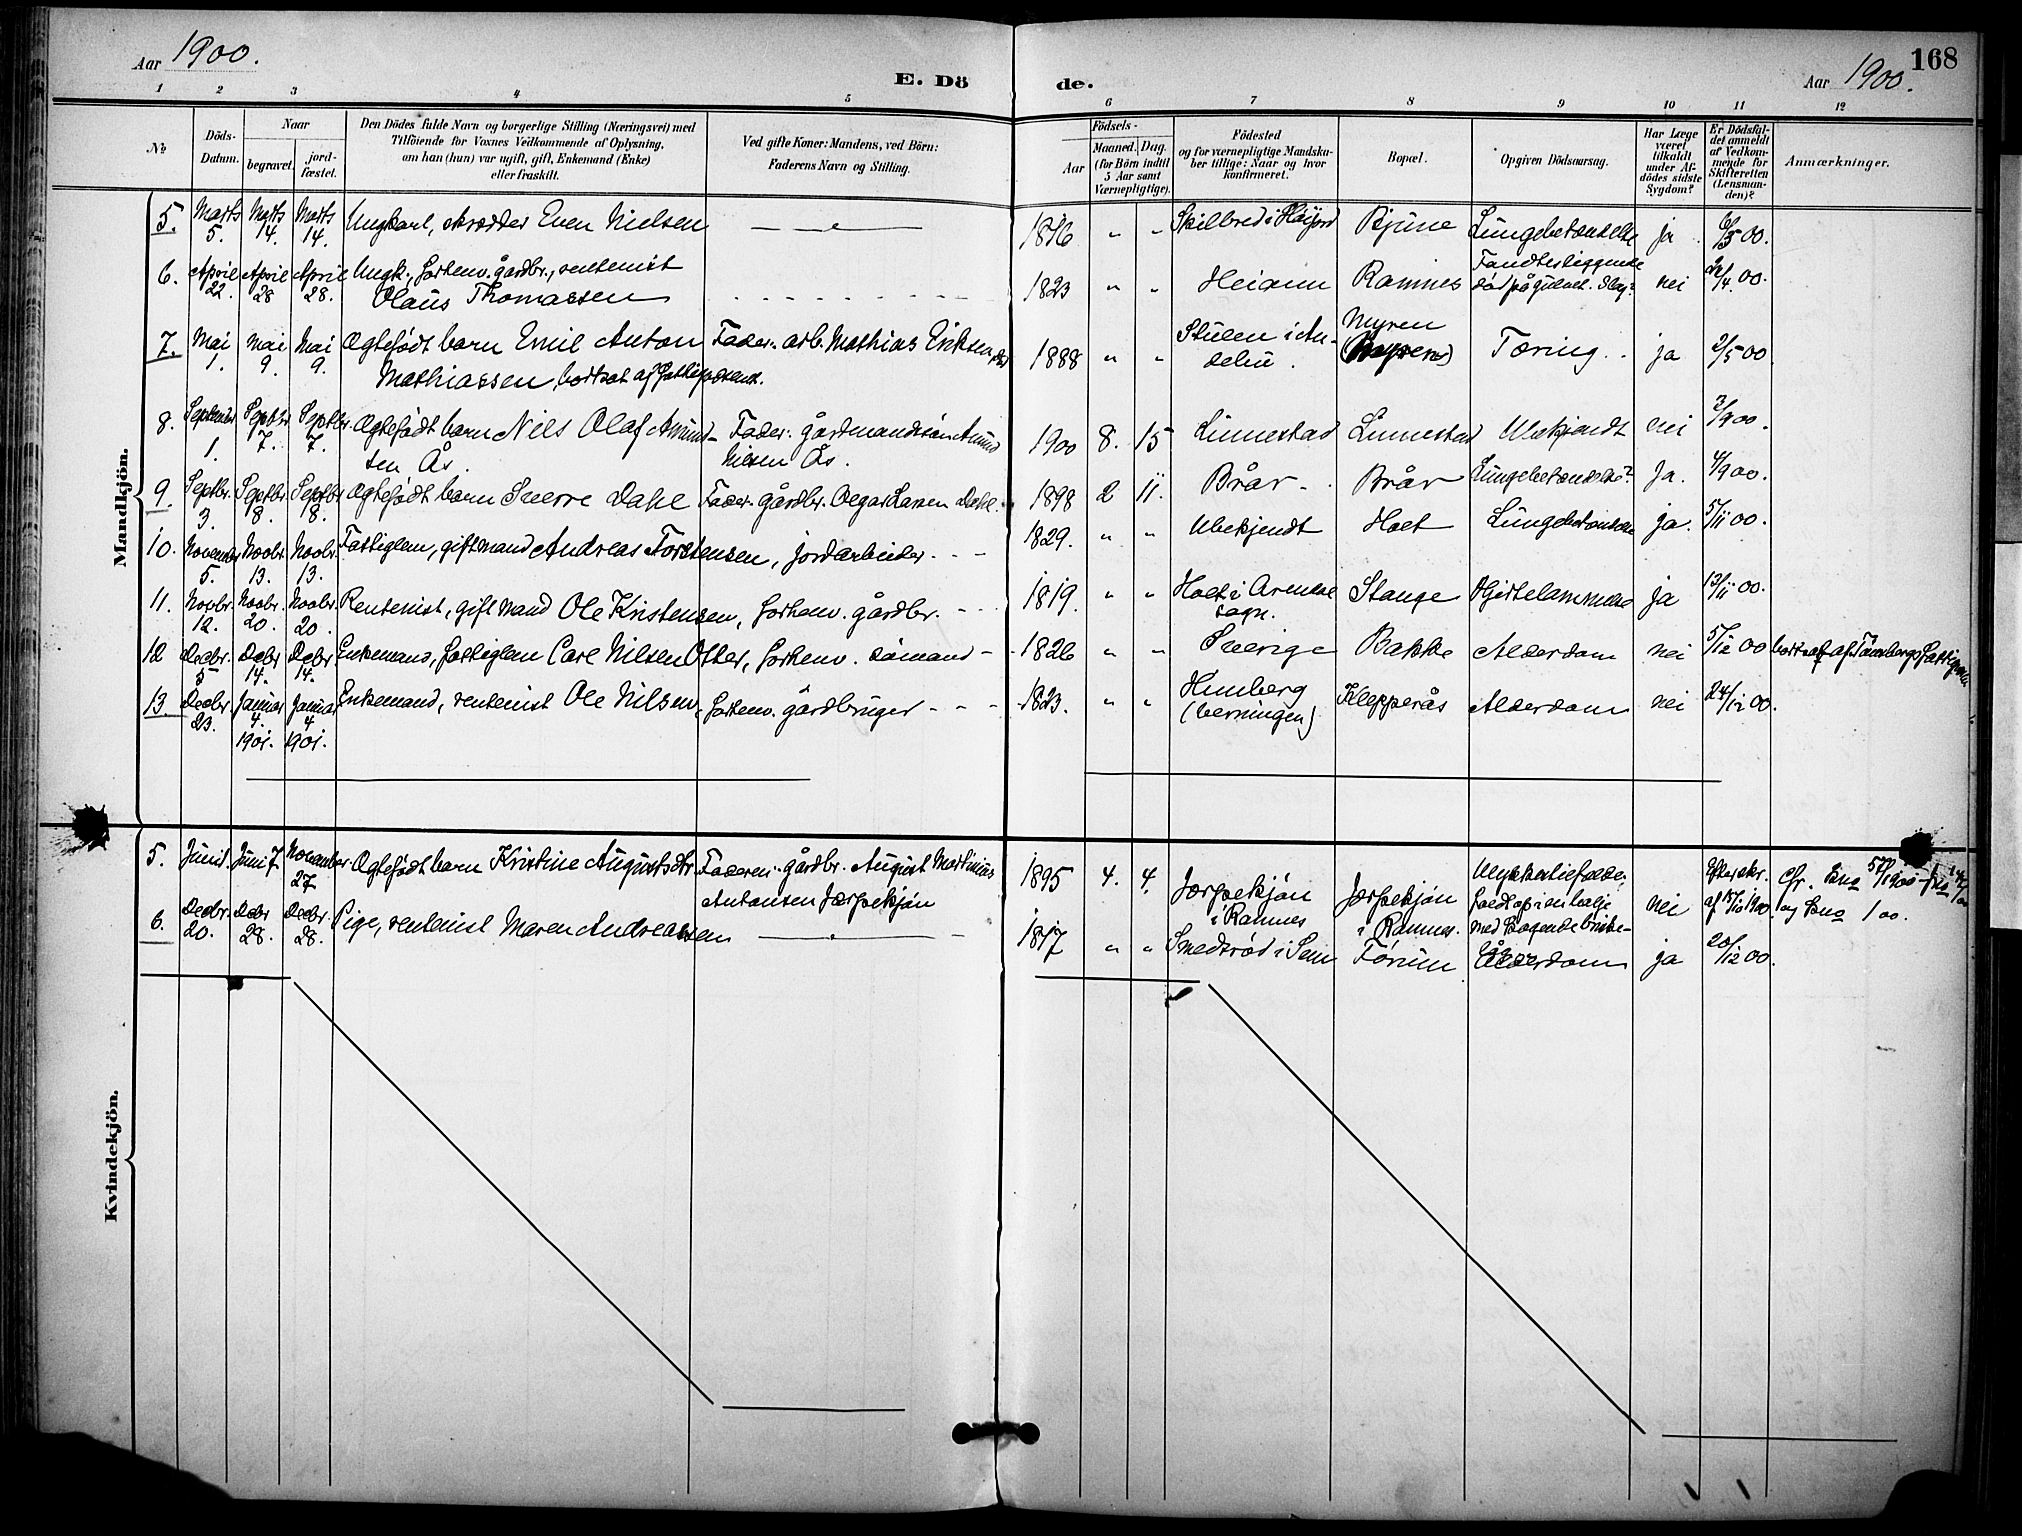 168
Aar 1900.
E. Dö de.
Aar 1900.
1 2 3 4 5 6 7 8 9 10 11 12
№
Döds-Datum.
Naar
begravet.
jord-fæstet.
Den Dödes fulde Navn og borgerlige Stilling (Næringsvei) med
Tilföiende for Voxnes Vedkommende af Oplysning,
om han (hun) var ugift, gift, Enkemand (Enke)
eller fraskilt.
Ved gifte Koner: Mandens, ved Börn:
Faderens Navn og Stilling.
Födsels-
Aar
Maaned. Dag.
(for Börn indtil
5 Aar samt
Værnepligtige).
Födested
og for værnepligtige Mandska-
ber tillige: Naar og hvor
konfirmeret.
Bopæl.
Opgiven Dödsaarsag.
Har Læge
været
tilkaldt
under Af-
dödes sidste
Sygdom?
Er Dödsfal-
det anmeldt
af Vedkom-
mende for
Skifteretten
(Lensman-
den)?
Anmærkninger.
Mandkjön.
5. Marts 5. Marts 14. Marts 14. Ungkarl, skrædder Even Nielsen 1816 " " Skilbred i Høijord Bjune Lungebetændelse ja 6/3 00.
6. April 22. April 28 April 28. Ungk., forhenv. gårdbr., rentenist
Olaus Thomassen 1823 " " Heiann Ramnes Fandtes liggende
død på gulvet. nei 22/4 00.
7. Mai 1. Mai 9. Mai 9. Ægtefødt barn Emil Anton Fader: arb. Mathias Eriksen
Mathiassen, bortsat af fattigvæsenet. 1888 " " Stulen i An-
debu. Myren Tæring. ja 2/5 00
8. September 1. Septbr. 7. Septbr. 7. Ægtefødt barn Nils Olaf Amund-
sen Ås. Fader: gårdmandssøn Amund
Nilsen Ås. 1900 8. 15 Linnestad Linnestad Ubekjendt nei 3/9 00.
9. Septbr. 3. Septbr. 8. Septbr. 8. Ægtefødt barn Sverre Dahl Fader: gårdbr. Oegar Larsen Dahl. 1898 2 11. Brår Brår Lungebetændelse? Ja. 4/9 00.
10. November 5. Novbr. 13. Novbr. 13. Fattiglem, gift mand Andreas Torstensen, jordarbeider. 1829. " " Ubekjendt Holt Lungebetændelse ja. 5/11 00.
11. Novbr. 12. Novbr. 20. Novbr. 20. Rentenist, gift mand Ole Kristensen, forhenv. gårdbr. 1819. " " Holt i Arendal
sogn. Stange Hjertelammelse ja 13/11 00.
12 Decbr. 5 Decbr 14. Decbr 14. Enkemand, fattiglem Carl Nilsen Otter, forhenv. sømand 1826 " " Sverige Bakke Alderdom nei 5/12 00 bortsat af Tønsbergs fattigvæsen
13. Decbr. 23. Januar 4. 1901. Januar 4 1901. Enkemand, rentenist Ole Nilsen, forhenv. gårdbruger 1823. " " Himberg
(berningen) Klepperås Alderdom nei 24/12 00.
Kvindekjön.
5. Juni 1. Juni 7. November 27 Ægtefødt barn Kristine Augustsdtr. Faderen: gårdbr. August Martinius
Antonsen Jærpekjøn 1895 4. 4. Jærpekjøn
i Ramnes Jærpekjøn
i Ramnes. Ulykkestilfælde;
faldt op i en balje
med kogende nei Efter skr.
af 15/10 1900. cfr. 1900
og 1 00.
6. Decbr. 20. Decbr 28. Decbr. 28. Pige, rentenist Maren Andreassen 1817 " " Smedsrød i Sem Førum Alderdom ja 20/12 00.